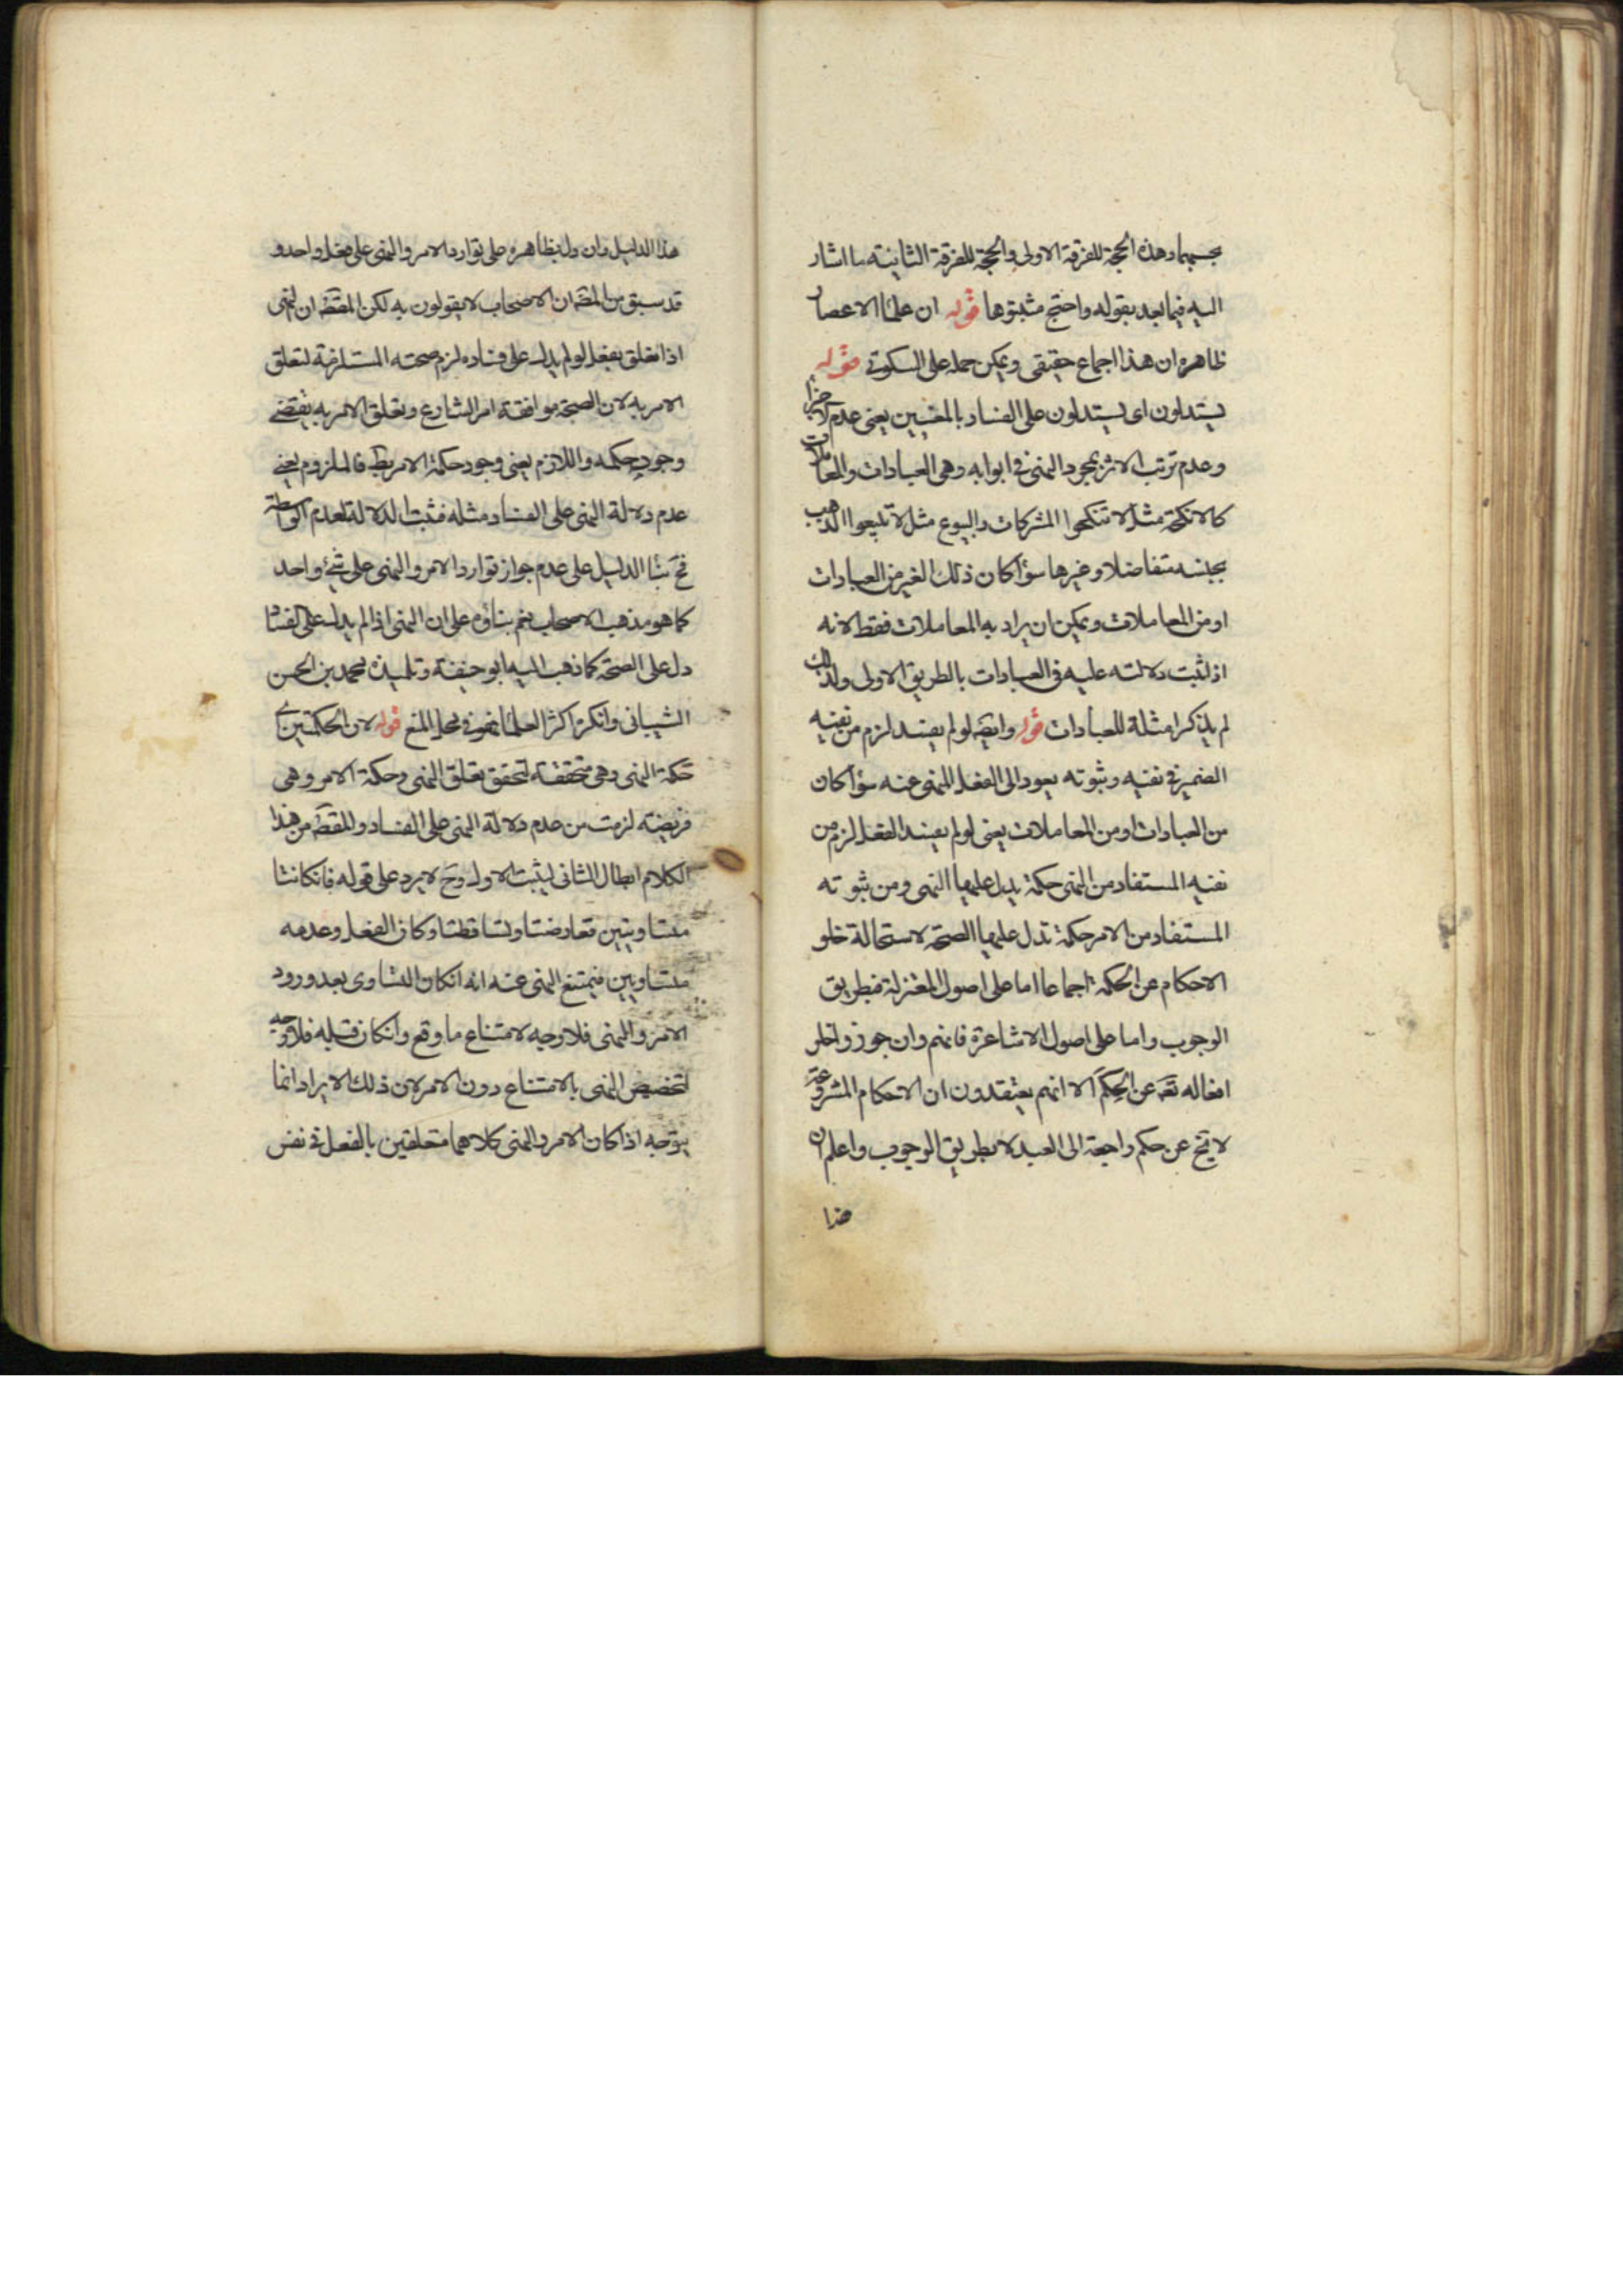 بجسبهما وهذه الحجة للفرقة الاولى والحجة للفرقة الثانية ما اشار
اليه فيما بعد بقوله واحتج مثبتوها قوله ان علماء الاعصار
ظاهره ان هذا اجماع حقيقى ويمكن حمله على السكوتى قوله
يستدلون اى يستدلون على الفساد بالمعنيين يعنى عدم الاجزاء
وعدم ترتب الاثر بمجرد النهى فى ابوابه وهى العبادات والمعاملات
كالانكحة مثل لا تنكحوا المشركات والبيوع مثل لا تبيعوا الذهب
بجنسه متفاضلا وغيرها سواء كان ذلك الغير من العبادات
او من المعاملات ويمكن ان يراد به المعاملات فقط لانه
اذ اثبت دلالته عليه فى العبادات بالطريق الاولى ولذلك
لم يذكر امثلة للعبادات قوله وايضا لو لم يفسد لزم من نفيه
الضمير فى نفيه وثبوته يعود الى الفعل المنهى عنه سواء كان
من العبادات او من المعاملات يعنى لو لم يفسد الفعل لزم من
نفيه المستفاد من النهى حكمة يدل عليها النهى ومن ثبوته
المستفاد من الامر حكمة تدل عليها الصحة لاستحالة خلو
الاحكام عن الحكمة اجماعا اما على اصول المعتزلة فبطريق
الوجوب واما على اصول الاشاعرة فانهم وان جوزوا خلو
افعاله تعه عن الحكم الا انهم يعتقدون ان الاحكام المشروعة
لا تخ عن حكم راجعة الى العبد لا بطريق الوجوب واعلم ان
هذا
هذا الدليل وان دل بظاهره على توارد الامر والنهى على فعل واحد و
قد سبق من المصه ان الاصحاب لا يقولون به لكن المقصه ان النهى
اذا تعلق بفعل لو لم يدل على فساده لزم صحته المستلزمة لتعلق
الامر به لان الصحة موافقة امر الشارع وتعلق الامر به يقتضى
وجود حكمه واللازم يعنى وجود حكمة الامر بط فالملزوم يعنى
عدم دلالة النهى على الفساد مثله فثبت الدلالة لعدم الواسطة
فح بناء الدليل على عدم جواز توارد الامر والنهى على شئ واحد
كما هو مذهب الاصحاب نعم بناؤه على ان النهى اذا لم يدل على الفساد
دل على الصحة كما ذهب اليه ابو حنيفة وتلميذه محمد بن الحسن
الشيبانى وانكره اكثر العلماء فهو فى محل المنع قوله لان الحكمتين اى
حكمة النهى وهى متحققة لتحقق تعلق النهى وحكمة الامر وهى
فرضية لزمت من عدم دلالة النهى على الفساد والمقصه من هذا
الكلام ابطال الثانى ليثبت الاول وح لا يرد على قوله فان كانتا
متساويتين تعارضتا وتساقطتا وكان الفعل وعدمه
متساويين فيمتنع النهى عنه انه ان كان التساوى بعد ورود
الامر والنهى فلا وجه لامتناع ما وقع وان كان قبله فلا وجه
لتخصيص النهى بالامتناع دون الامر لان ذلك الايراد انما
يتوجه اذا كان الامر والنهى كلاهما متعلقين بالفعل فى نفس